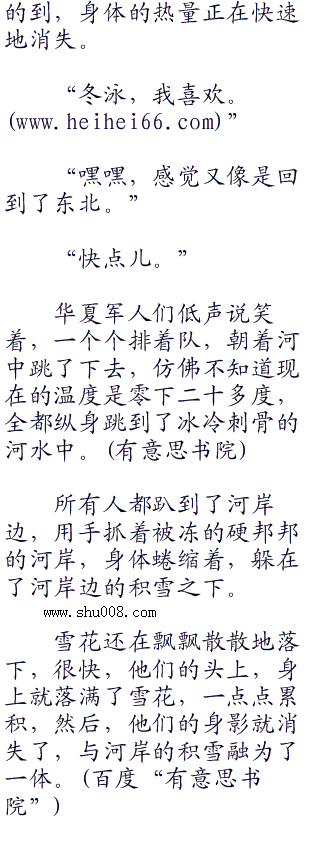 的到，身体的热量正在快速
地消失。
“冬泳，我喜欢。
(www.heihei66.com)”
“嘿嘿，感觉又像是回
到了东北。”
“快点儿。”
华夏军人们低声说笑
着，一个个排着队，朝着河
中跳了下去，仿佛不知道现
在的温度是零下二十多度，
全都纵身跳到了冰冷刺骨的
河水中。(有意思书院)
所有人都趴到了河岸
边，用手抓着被冻的硬邦邦
的河岸，身体蜷缩着，躲在
了河岸边的积雪之下。
www.shu008.com
雪花还在飘飘散散地落
下，很快，他们的头上，身
上就落满了雪花，一点点累
积，然后，他们的身影就消
失了，与河岸的积雪融为了
一体。(百度“有意思书
院”)